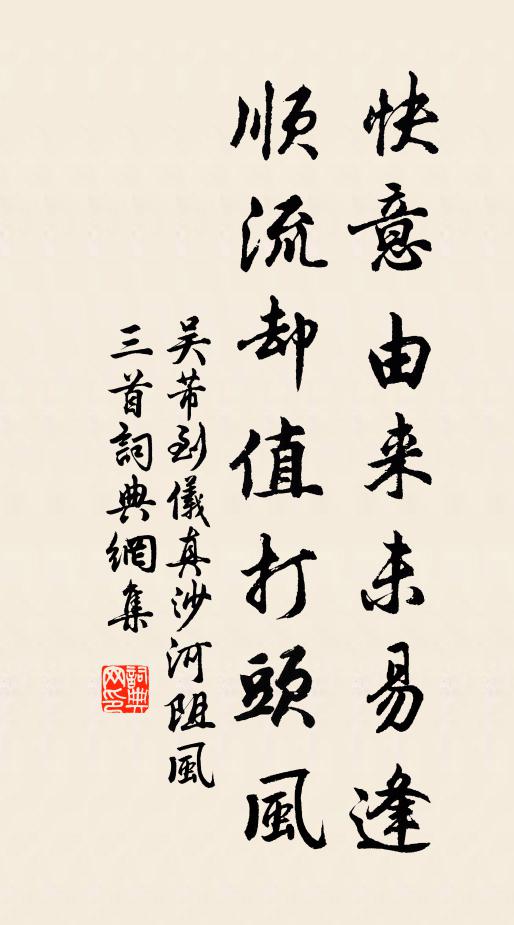 快意由来未易逢
順流却值打頭風
吴芾到儀真沙河阻風
三首詞典網集
詞典网印